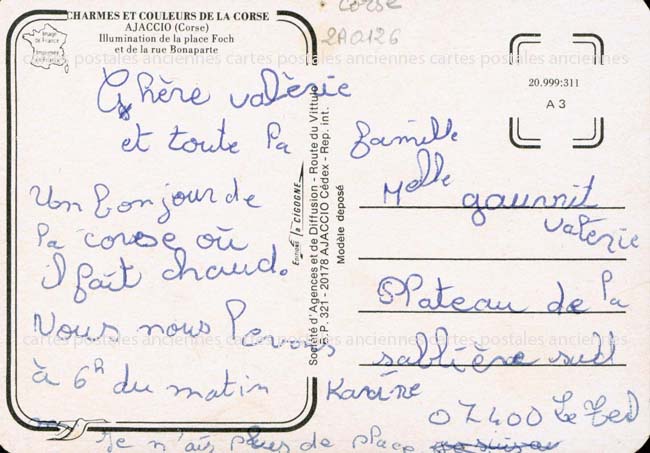 CHARMES ET COULEURS DE LA CORSE
AJACCIO (Corse)
Illumination de la place Foch
et de la rue Bonaparte
Image de France
corse
2A0126
20.999:311
A 3
cartes postales anciennes cartes postales anciennes cartes postales anciennes
Chère valèrie
et toute la famille
Un bonjour de
la corse où
il fait chaud.
Vous nous levons
à 6h du matin
Karine
Je n'ais plus de place
Editions la CIGOGNE
Société d'Agences et de Diffusion - Route du Vittulo
B.P. 321 - 20178 AJACCIO Cédex - Rep. int.
Modèle déposé
Melle gaunnit
valèrie
Plateau de la
sablière sud
07400 Le Teil
cartes postales anciennes cartes postales anciennes cartes postales anciennes